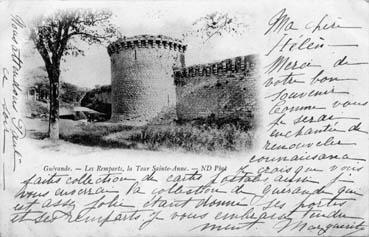 Nous attendons Paul
ce soir
Guérande. — Les Remparts, la Tour Sainte-Anne. — ND Phot
Ma
Hélène
Merci de
votre bon
souvenir
comme vous
je serai
enchantée de
renouveler
connaissance
je crois que vous
faites collection de cartes postales aussi
vous enverrai la collection de Guérande qui
est assez jolie étant donné ses portes
et ses remparts je vous embrasse tendre
ment Marguerite